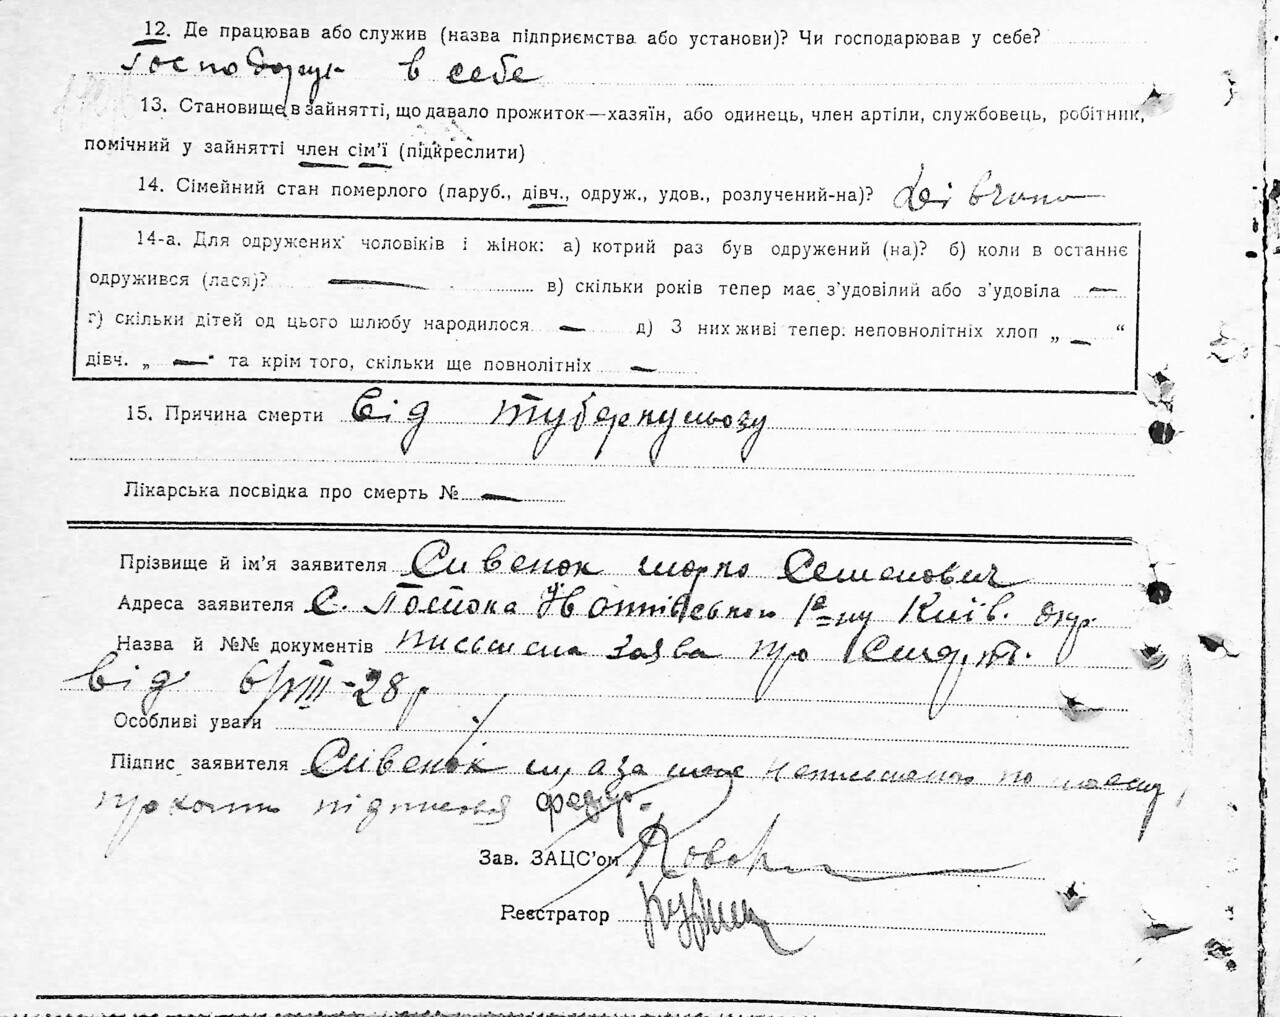 12. Де працював або служив (назва підприємства або установи)? Чи господарював у себе?
Господарує в себе
13. Становище в зайнятті, що давало прожиток—хазяїн, або одинець, член артіли, службовець, робітник,
помічний у зайнятті член сім'ї (підкреслити)
14. Сімейний стан померлого (паруб., дівч., одруж., удов., розлучений-на)? Дівчина
14-а. Для одружених чоловіків і жінок: а) котрий раз був одружений (на)? б) коли в останнє
одружився (лася)? — в) скільки років тепер має з'удовілий або з'удовіла —
г) скільки дітей од цього шлюбу народилося — д) З них живі тепер: неповнолітніх хлоп „ — “
дівч. „ — " та крім того, скільки ще повнолітніх —
15. Причина смерти Від туберкульозу
Лікарська посвідка про смерть № —
Прізвище й ім'я заявителя Сивенок Марко Семенович
Адреса заявителя С. Київ. окр.
Назва й №№ документів письмена заява про смерт.
від 6/VIII-28 р
Особливі уваги
Підпис заявителя Сивенок а за його неписьменого по його
проханню підписався
Зав. ЗАЦС'ом
Реєстратор